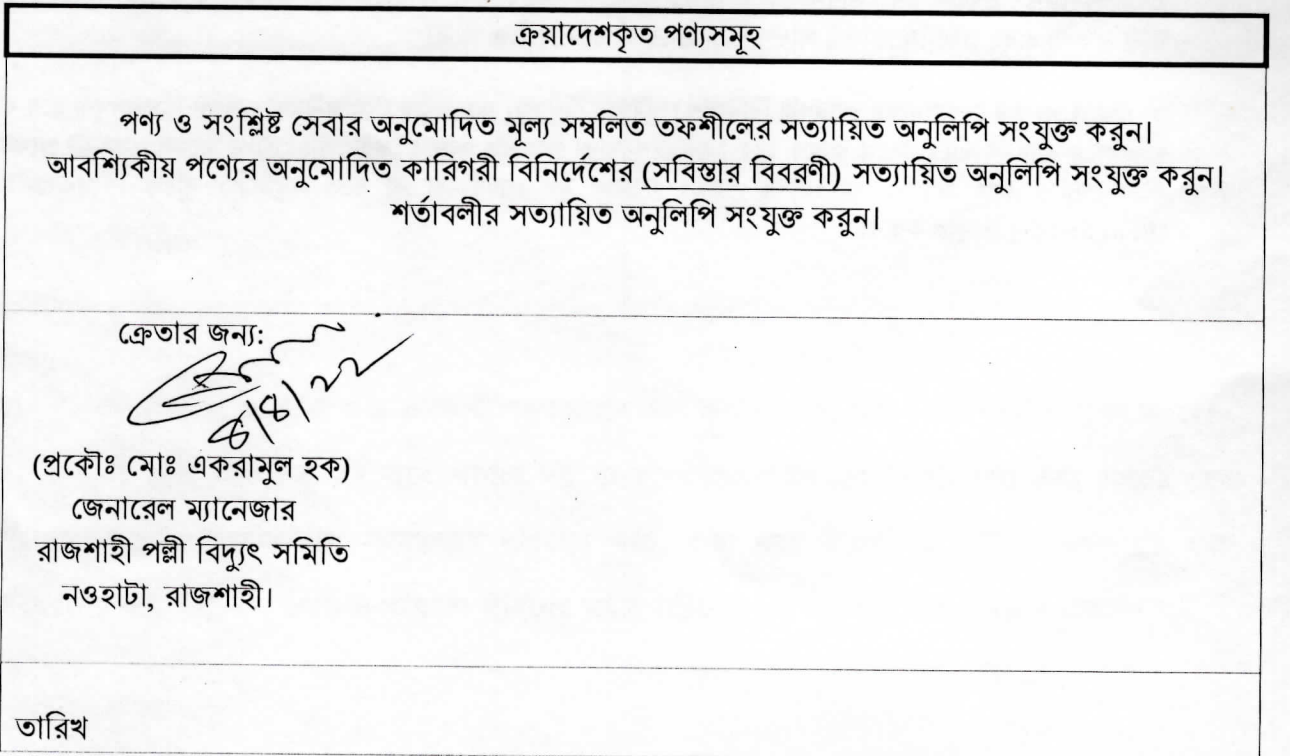 ক্রয়াদেশকৃত পণ্যসমূহ
পণ্য ও সংশ্লিষ্ট সেবার অনুমোদিত মূল্য সম্বলিত তফশীলের সত্যায়িত অনুলিপি সংযুক্ত করুন।
আবশ্যিকীয় পণ্যের অনুমোদিত কারিগরী বিনির্দেশের (সবিস্তার বিবরণী) সত্যায়িত অনুলিপি সংযুক্ত করুন।
শর্তাবলীর সত্যায়িত অনুলিপি সংযুক্ত করুন।
ক্রেতার জন্য:
(প্রকৌঃ মোঃ একরামুল হক)
জেনারেল ম্যানেজার
রাজশাহী পল্লী বিদ্যুৎ সমিতি
নওহাটা, রাজশাহী।
তারিখ